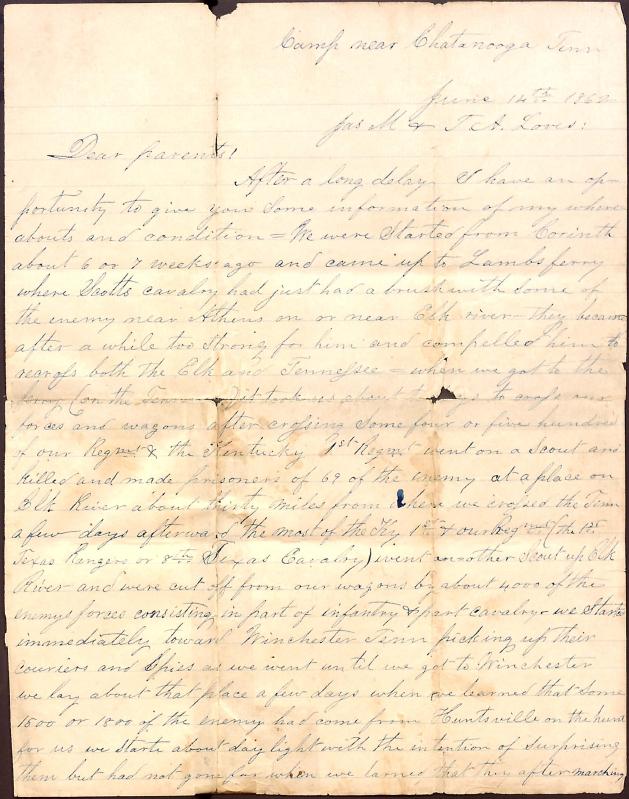 Camp near Chatanooga Tenn
June 14th 1862
Jas M & T. A. Loves:
Dear parents!
After a long delay I have an op-
portunity to give you some information of my where
abouts and condition = We were started from Corinth
about 6 or 7 weeks ago and came up to Lambsferry
where Scotts cavalry had just had a brush with some of
the enemy near Athens on or near Elk river - they became
after a while too strong for him and compelled him to
recross both the Elk and Tennessee = when we got to the
ferry (on the Tenn) it took us about days to cross our
forces and wagons after crossing some four or five hundred
of our Regmt & the Kentucky 1st Regmt went on a scout and
killed and made prisoners of 69 of the enemy at a place on
Elk River about thirty miles from where we crossed the Tenn
a few days afterward the most of the Ky 1st & our Regmt (the
Texas Rangers or 8th Texas Cavalry) went another scout up Elk
River and were cut off from our wagons by about 4000 of the
enemys forces consisting in part of infantry & part cavalry - we started
immediately toward Winchester Tenn picking up their
couriers and Spies as we went until we got to Winchester
we lay about that place a few days when we learned that some
1500 or 1800 of the enemy had come from Huntsville on the hunt
for us we starte about day light with the intention of surprising
them but had not gone far when we larned that they after marching